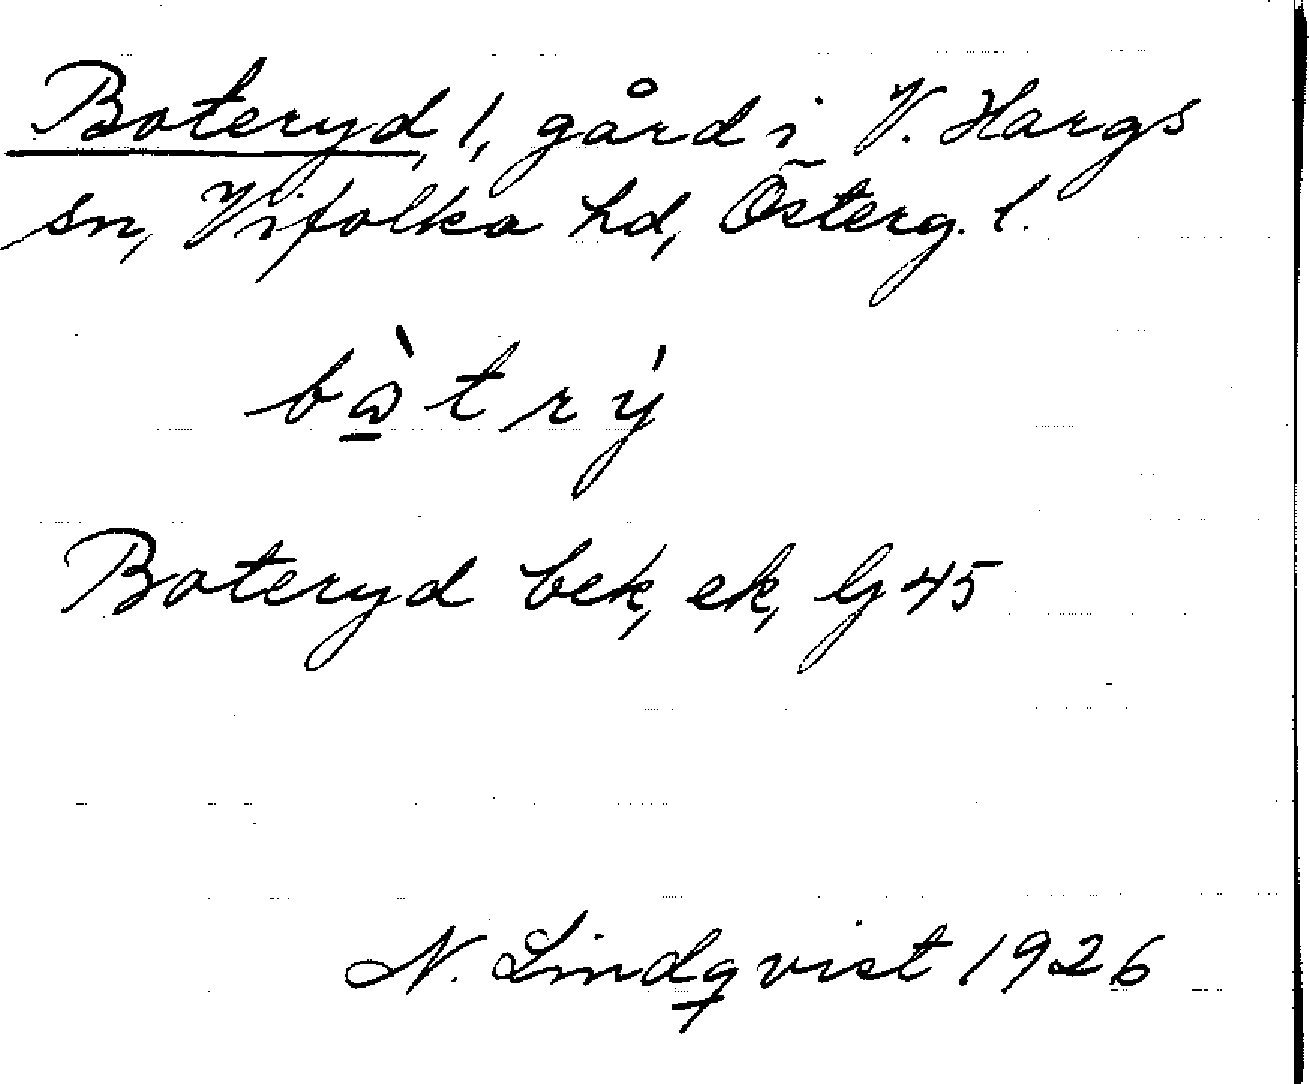 Boteryd, 1, gård i V. Hargs
sn, Vifolka hd, Österg. l.
bὼtrý
Boteryd bek, ek, Gj 45
N. Lindqvist 1926